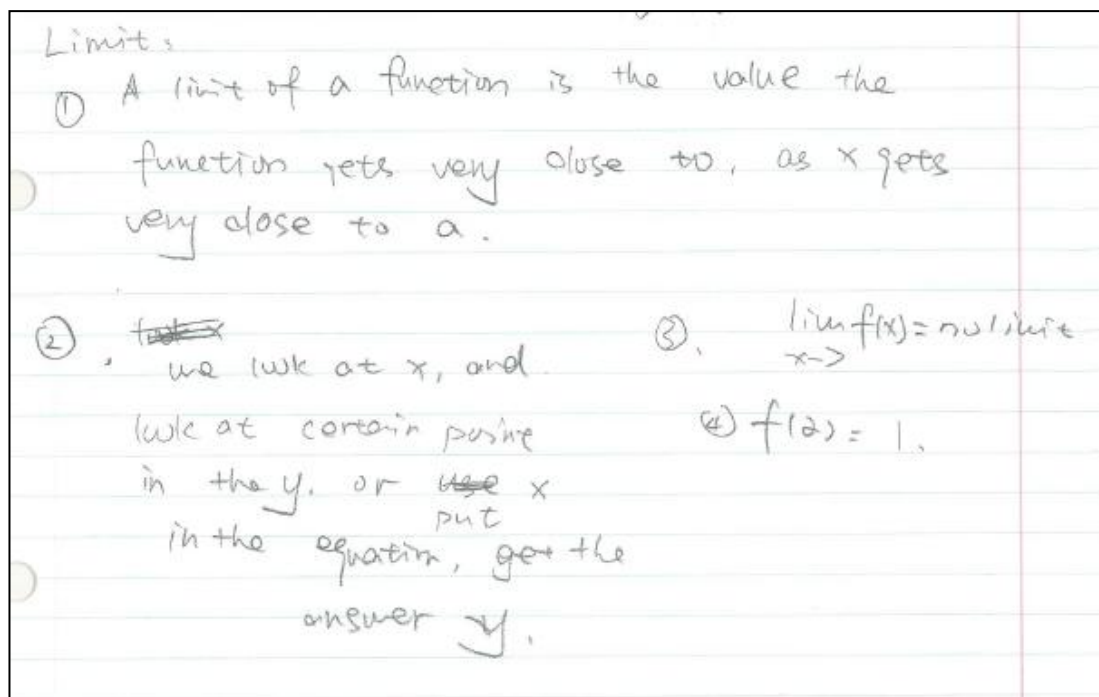 Limit:
① A limit of a function is the value the
function gets very close to, as x gets
very close to a.
②. we look at x, and
look at certain point
in the y. or put x
in the equation, get the
answer y.
③. lim f(x) = no limit
x->
④ f(2) = 1.